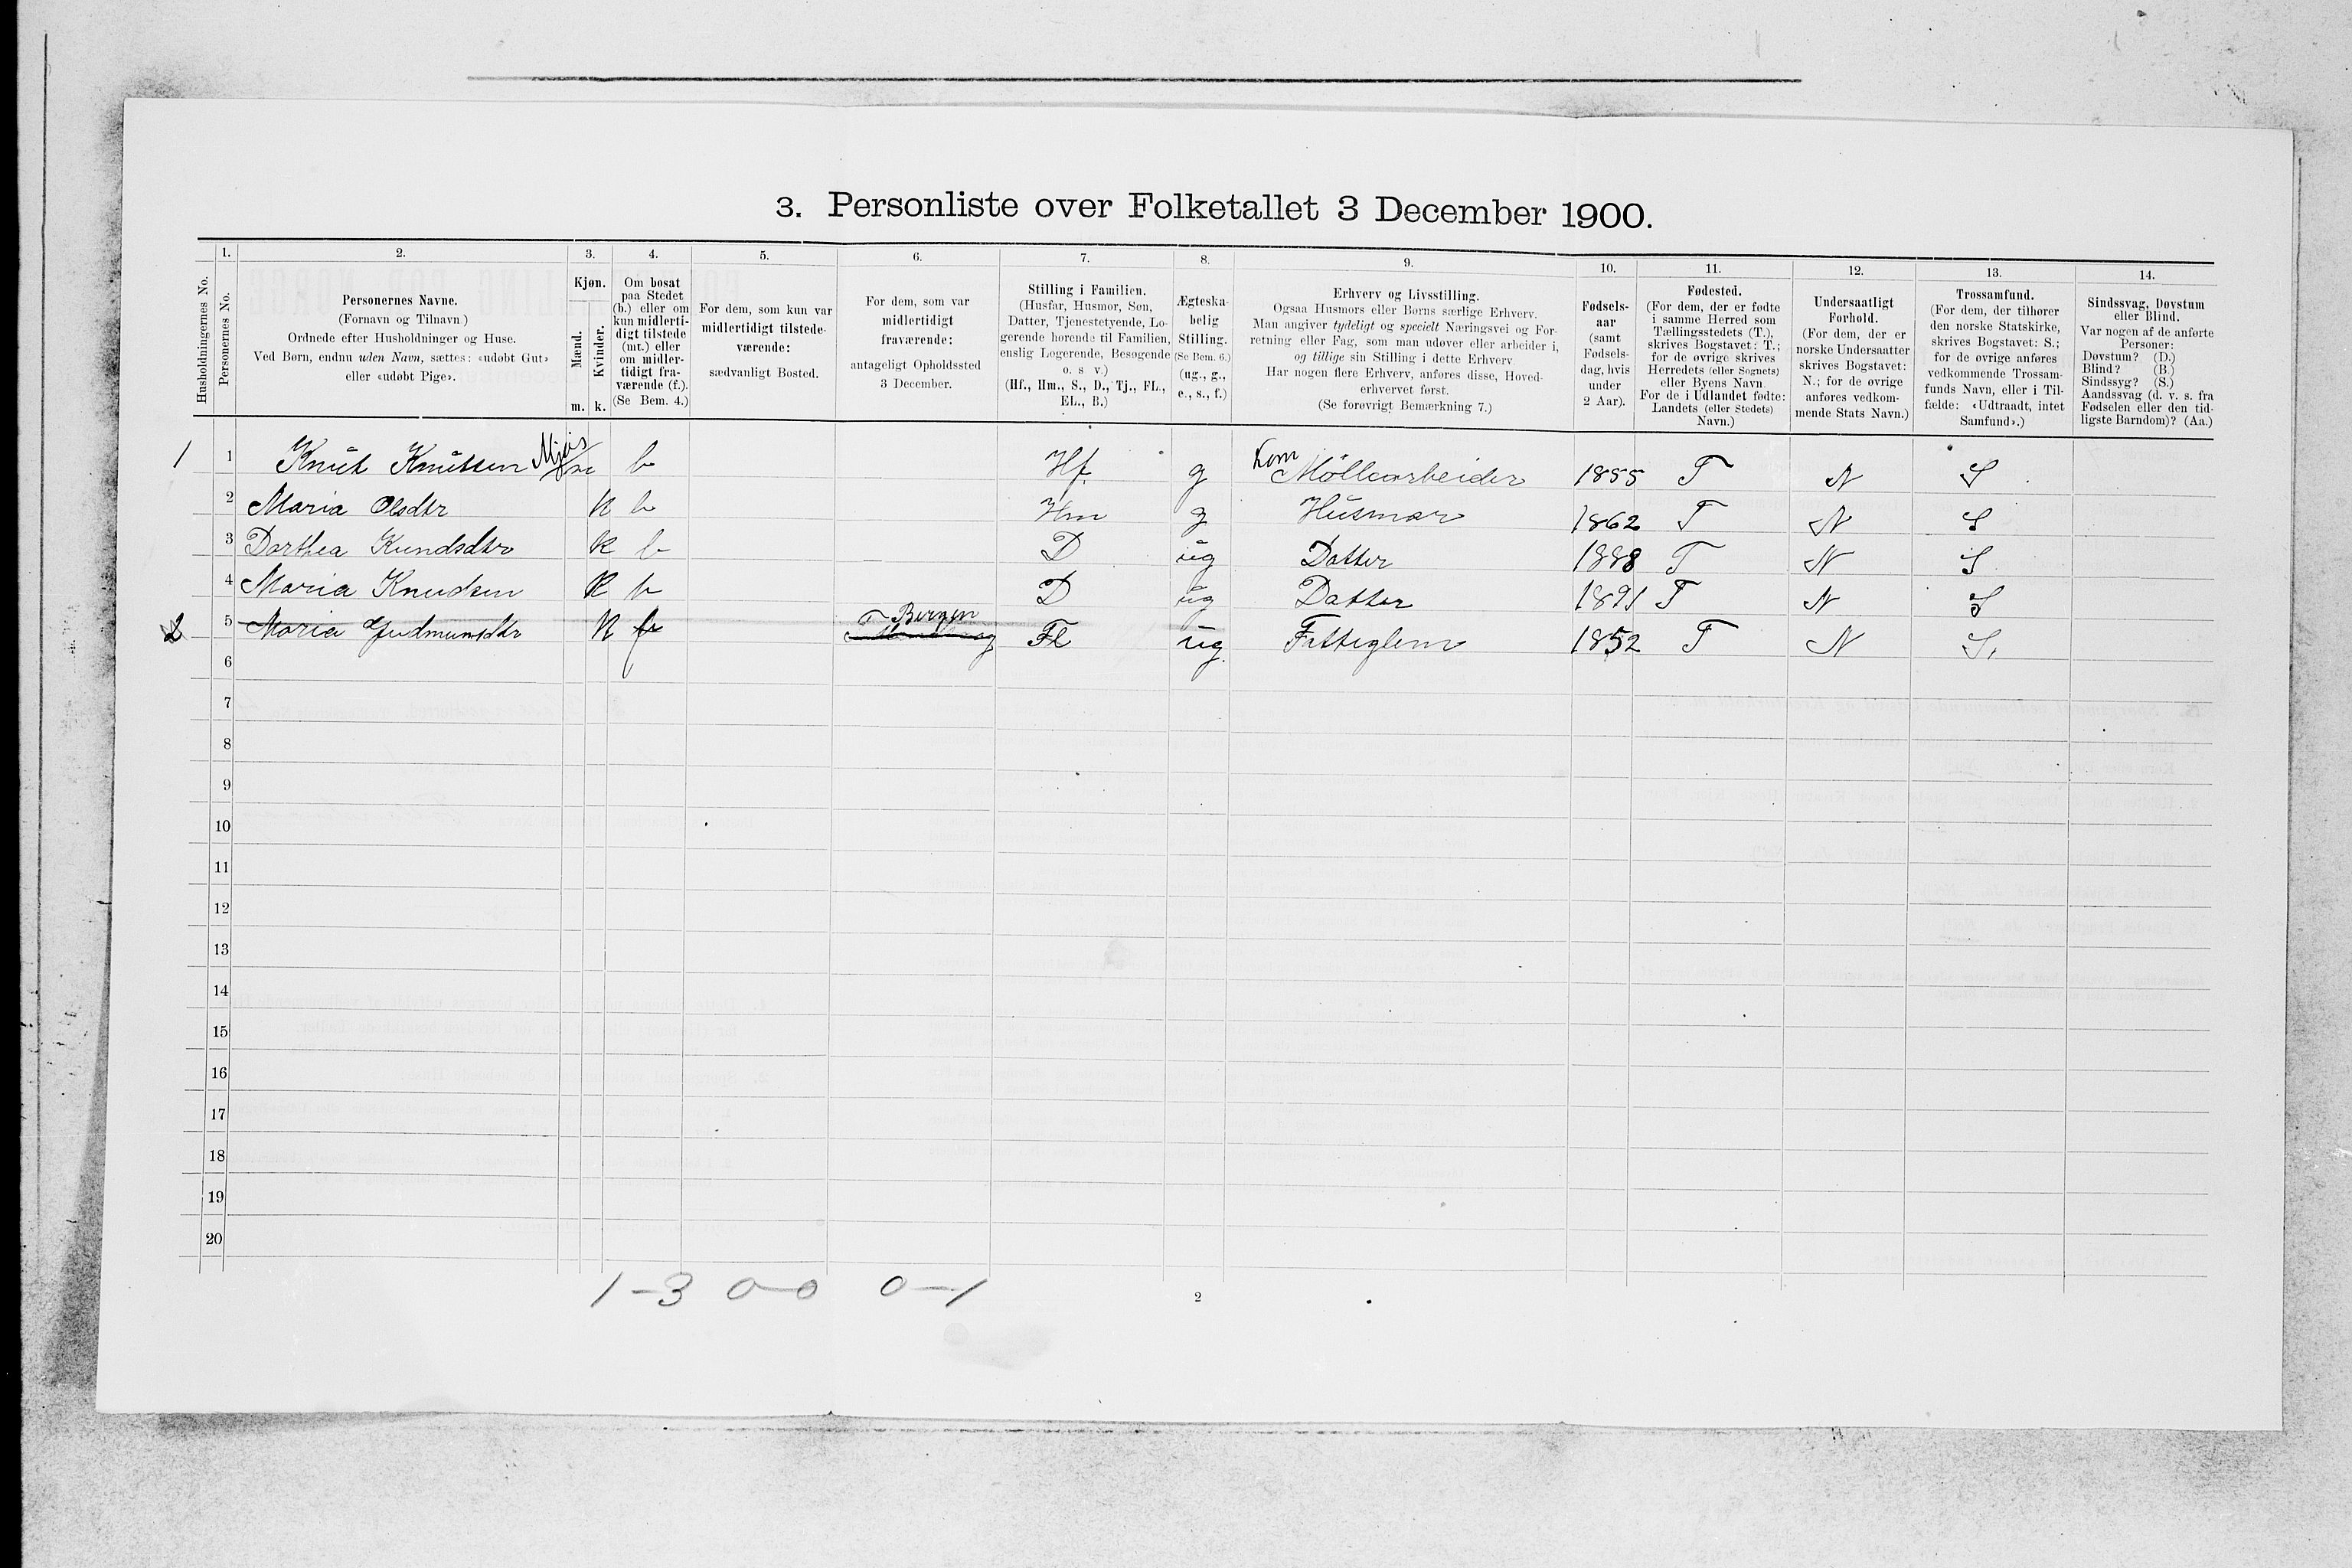 3. Personliste over Folketallet 3 December 1900.
1. 2. 3. 4. 5. 6. 7. 8. 9. 10. 11. 12. 13. 14.
Husholdningernes No.
Personernes No.
Personernes Navne.
(Fornavn og Tilnavn.)
Ordnede efter Husholdninger og Huse.
Ved Børn, endnu uden Navn, sættes: «udøbt Gut»
eller «udøbt Pige».
Kjøn.
Mænd.
Kvinder.
m. k.
Om bosat
paa Stedet
(b.) eller om
kun midlerti-
digt tilstede
(mt.) eller
om midler-
tidigt fra-
værende (f.).
(Se Bem. 4.)
For dem, som kun var
midlertidigt tilstede-
værende:
sædvanligt Bosted.
For dem, som var
midlertidigt
fraværende:
antageligt Opholdssted
3 December.
Stilling i Familien.
(Husfar, Husmor, Søn,
Datter, Tjenestetyende, Lo-
gerende hørende til Familien,
enslig Logerende, Besøgende
o. s v.)
(Hf., Hm., S., D., Tj., FL.,
EL., B.)
Ægteska-
belig
Stilling.
(Se Bem. 6.)
(ug., g.,
e., s., f.)
Erhverv og Livsstilling.
Ogsaa Husmors eller Børns særlige Erhverv.
Man angiver tydeligt og specielt Næringsvei og For-
retning eller Fag, som man udøver eller arbeider i,
og tillige sin Stilling i dette Erhverv.
Har nogen flere Erhverv, anføres disse, Hoved-
erhvervet først.
(Se forøvrigt Bemærkning 7.)
Fødsels-
aar
(samt
Fødsels-
dag, hvis
under
2 Aar).
Fødested.
(For dem, der er fødte
i samme Herred som
Tællingsstedets (T.),
skrives Bogstavet: T.;
for de øvrige skrives
Herredets (eller Sognets)
eller Byens Navn.
For de i Udlandet fødte:
Landets (eller Stedets)
Navn.)
Undersaatligt
Forhold.
(For dem, der er
norske Undersaatter
skrives Bogstavet:
N.; for de øvrige
anføres vedkom-
mende Stats Navn.)
Trossamfund.
(For dem, der tilhører
den norske Statskirke,
skrives Bogstavet: S.;
for de øvrige anføres
vedkommende Trossam-
funds Navn, eller i Til-
fælde: «Udtraadt, intet
Samfund».)
Sindssvag, Døvstum
eller Blind.
Var nogen af de anførte
Personer:
Døvstum? (D.)
Blind? (B.)
Sindssyg? (S.)
Aandssvag (d. v. s. fra
Fødselen eller den tid-
ligste Barndom)? (Aa.)
1 1 Knut Knutsen Mjøs m b Hf. g Kom Mölloarbeider 1855 T N S
2 Maria Olsdtr K b Hm g Husmor 1862 T N S
3 Dorthea Kundsdtr K b D ug Datter 1888 T N S
4 Maria Knudsen K b D ug Datter 1891 T N S
2 5 Maria Gudmunsdtr K f T Bergen FL ug. Fattiglem 1852 T N S.
6
7
8
9
10
11
12
13
14
15
16
17
18
19
20
1-3 0-0 0-1
2